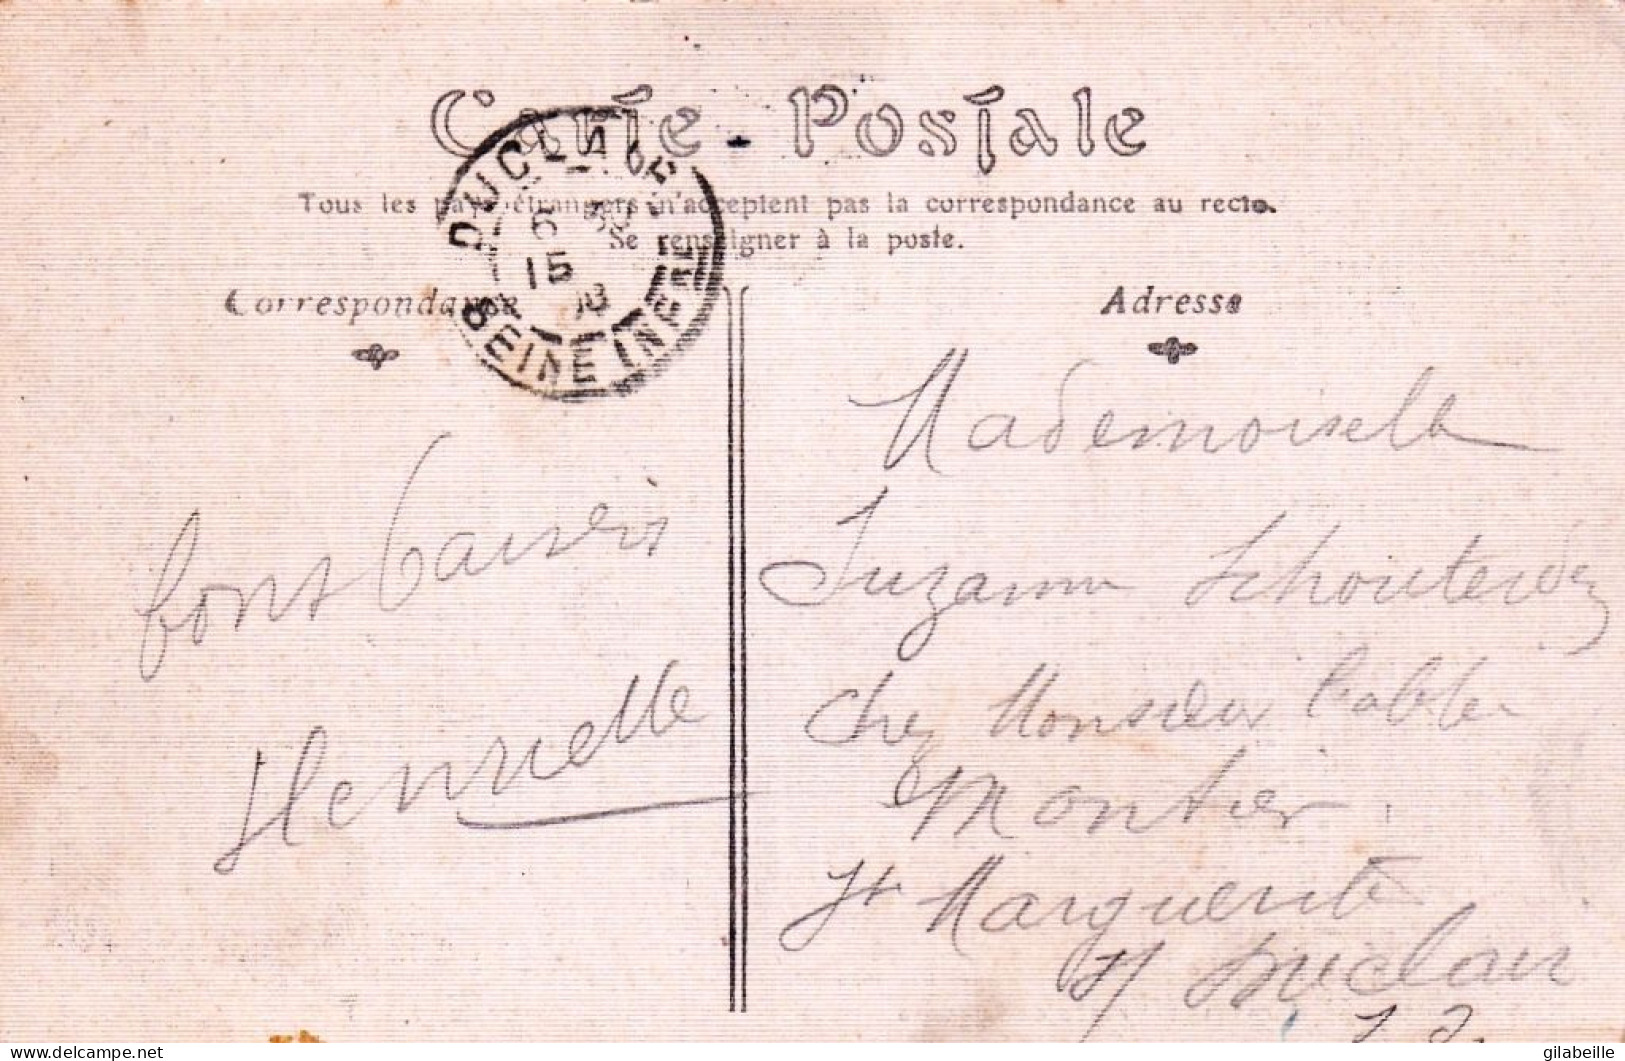 Carte - Postale
Tous les pays étrangers n'acceptent pas la correspondance au recto.
Se renseigner à la poste.
Correspondance
Adresse
DUCLAIR
6 30
15
SEINE INFRE
bons baisers
Henriette
Mademoiselle
Suzanne
chez Monsieur
Montier
St Marguerite
s/ Duclair
delcampe.net
gilabeille